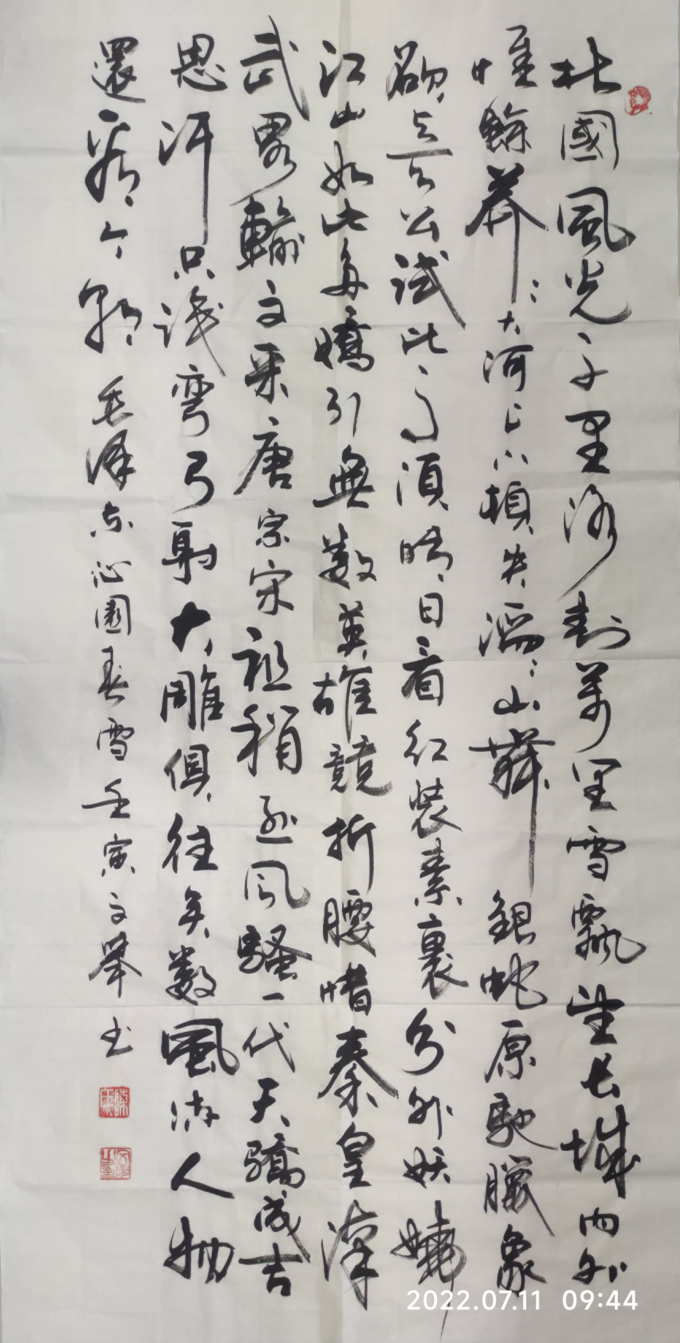 北國風光千里冰封萬里雪飄望長城內外
惟餘莽〻大河上下頓失滔〻山舞銀蛇原馳臘象
欲與天公試比高須晴日看紅裝素裹分外妖嬈
江山如此多嬌引無數英雄競折腰惜秦皇漢
武畧輸文采唐宗宋祖稍遜風騷一代天驕成吉
思汗只識彎弓射大雕俱往矣數風流人物
還看今朝 毛澤东沁園春雪壬寅文舉书
2022.07.11 09:44